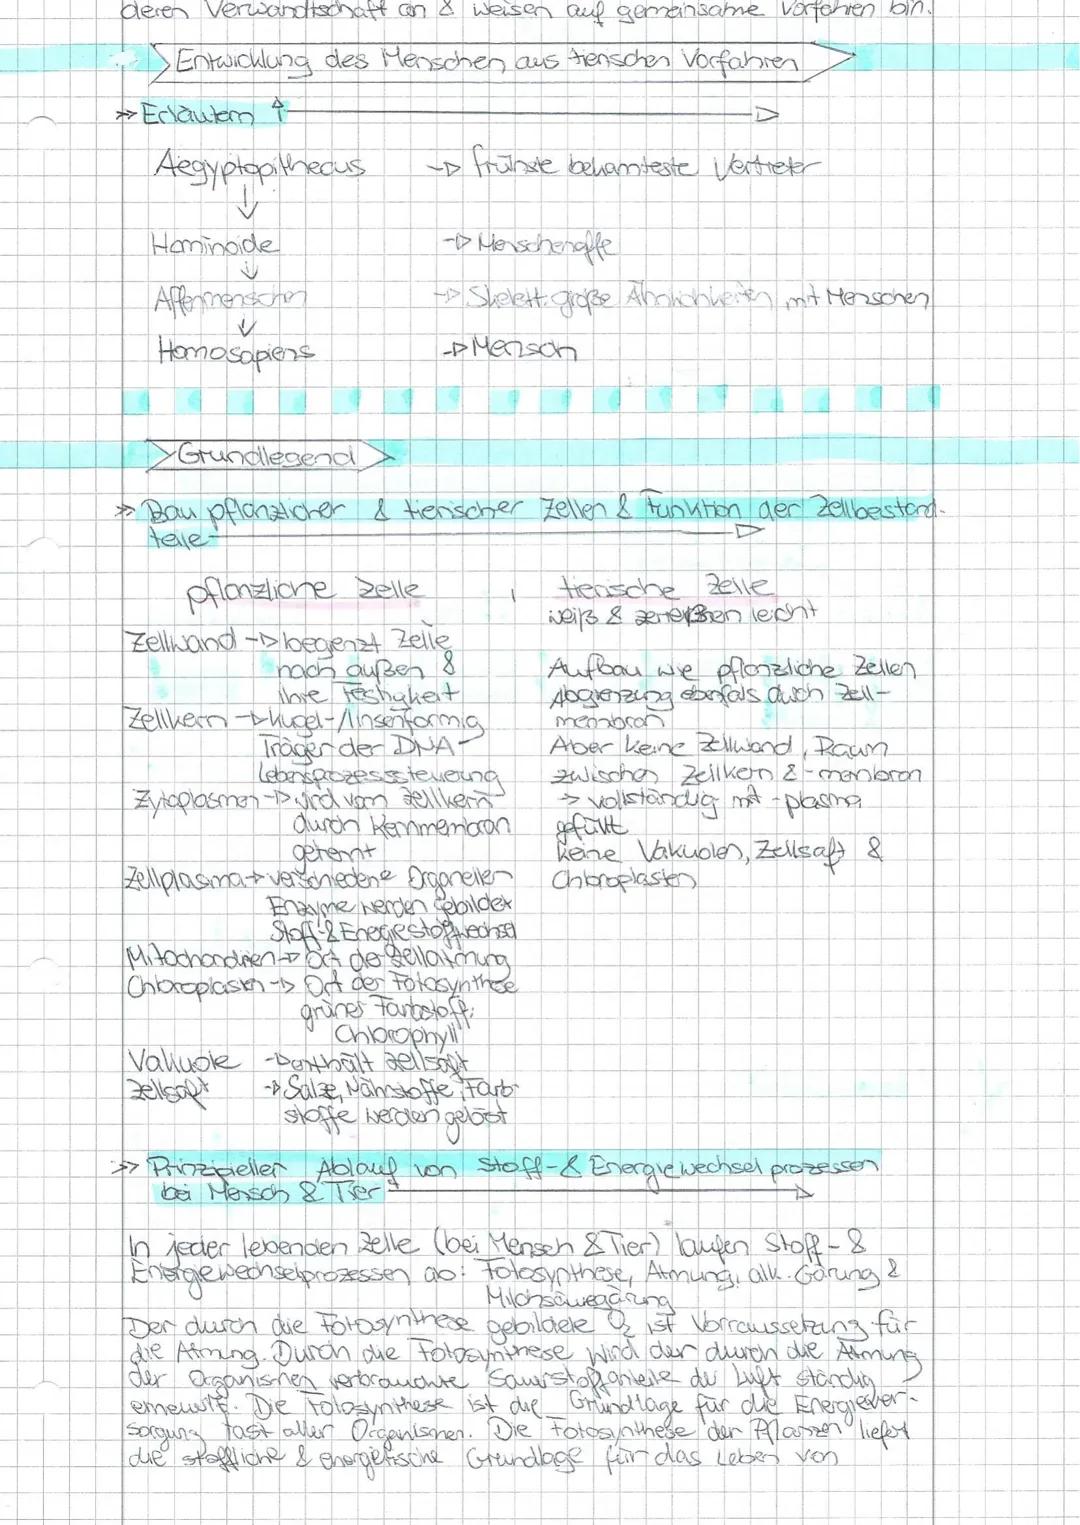 deren Verwandtschaft an & weisen auf gemeinsame Vorfahren hin.
Entwicklung des Menschen aus tierischen Vorfahren
>> Erläutern
Aegyptopithecus -> frühste bekannteste Vertreter
Hominoide -> Menschenaffe
Affenmenschen -> Skelett: große Ähnlichkeiten mit Menschen
Homosapiens -> Mensch
Grundlegend
>> Bau pflanzlicher & tierischer Zellen & Funktion der Zellbestand-
teile
pflanzliche Zelle
Zellwand -> begenzt Zelle
nach außen &
ihre Festigkeit
Zellkern -> kugel-/linsenförmig
Träger der DNA
Lebensprozesssteuerung
Zytoplasmen -> wird vom Zellkern
durch Kernmembran
getrennt
Zellplasma -> verschiedene Organellen
Enzyme werden gebildet
Stoff- & Energiestoffwechsel
Mitochondrien -> Ort der Zellatmung
Chloroplasten -> Ort der Fotosynthese
grüner Farbstoff:
Chlorophyll
Vakuole -> enthält Zellsaft
Zellsaft -> Salze, Nährstoffe, Farb-
stoffe werden gelöst
tierische Zelle
weiß & zerreißen leicht
Aufbau wie pflanzliche Zellen
Abgrenzung ebenfals durch Zell-
membran
Aber keine Zellwand, Raum
zwischen Zellkern & -membran
-> vollständig mit -plasma
gefüllt
keine Vakuolen, Zellsaft &
Chloroplasten
>> Prinzipieller Ablauf von Stoff- & Energiewechselprozessen
bei Mensch & Tier
In jeder lebenden Zelle (bei Mensch & Tier) laufen Stoff- &
Energiewechselprozessen ab: Fotosynthese, Atmung, alk. Gärung &
Milchsäuregärung
Der durch die Fotosynthese gebildete O₂ ist Vorraussetzung für
die Atmung. Durch die Fotosynthese wird der durch die Atmung
der Organismen verbrauchte Sauerstoffanteile der Luft ständig
erneuert. Die Fotosynthese ist die Grundlage für die Energiever-
sorgung fast aller Organismen. Die Fotosynthese der Pflanzen liefert
die stoffliche & energetische Grundlage für das Leben von